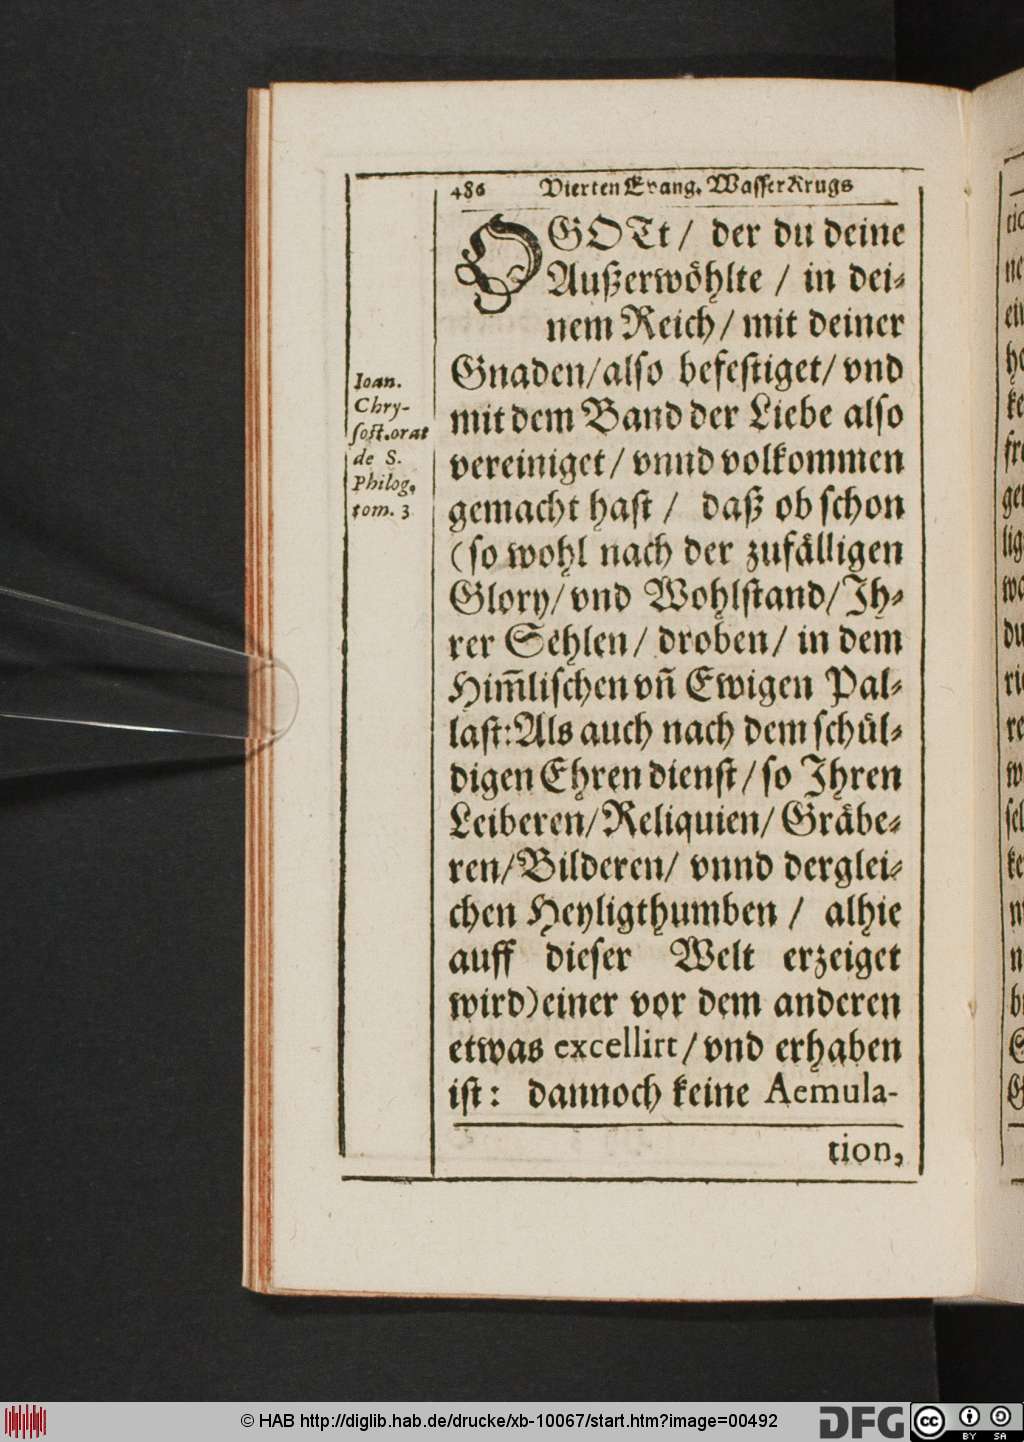 486 Vierten Evang. Wasser Krugs
O GOTt / der du deine
Außerwöhlte / in dei-
nem Reich / mit deiner
Gnaden / also befestiget / vnd
mit dem Band der Liebe also
vereiniget / vnnd volkommen
gemacht hast / daß ob schon
(so wohl nach der zufälligen
Glory / vnd Wohlstand / Ih-
rer Sehlen / droben / in dem
Him̅lischen vn̅ Ewigen Pal-
last: Als auch nach dem schůl-
digen Ehren dienst / so Ihren
Leiberen / Reliquien / Gräbe-
ren / Bilderen / vnnd derglei-
chen Heyligthumben / alhie
auff dieser Welt erzeiget
wird) einer vor dem anderen
etwas excellirt / vnd erhaben
ist: dannoch keine Aemula-
tion,
Ioan.
Chry-
sost. orat
de S.
Philog,
tom. 3
© HAB http://diglib.hab.de/drucke/xb-10067/start.htm?image=00492
DFG
cc BY SA